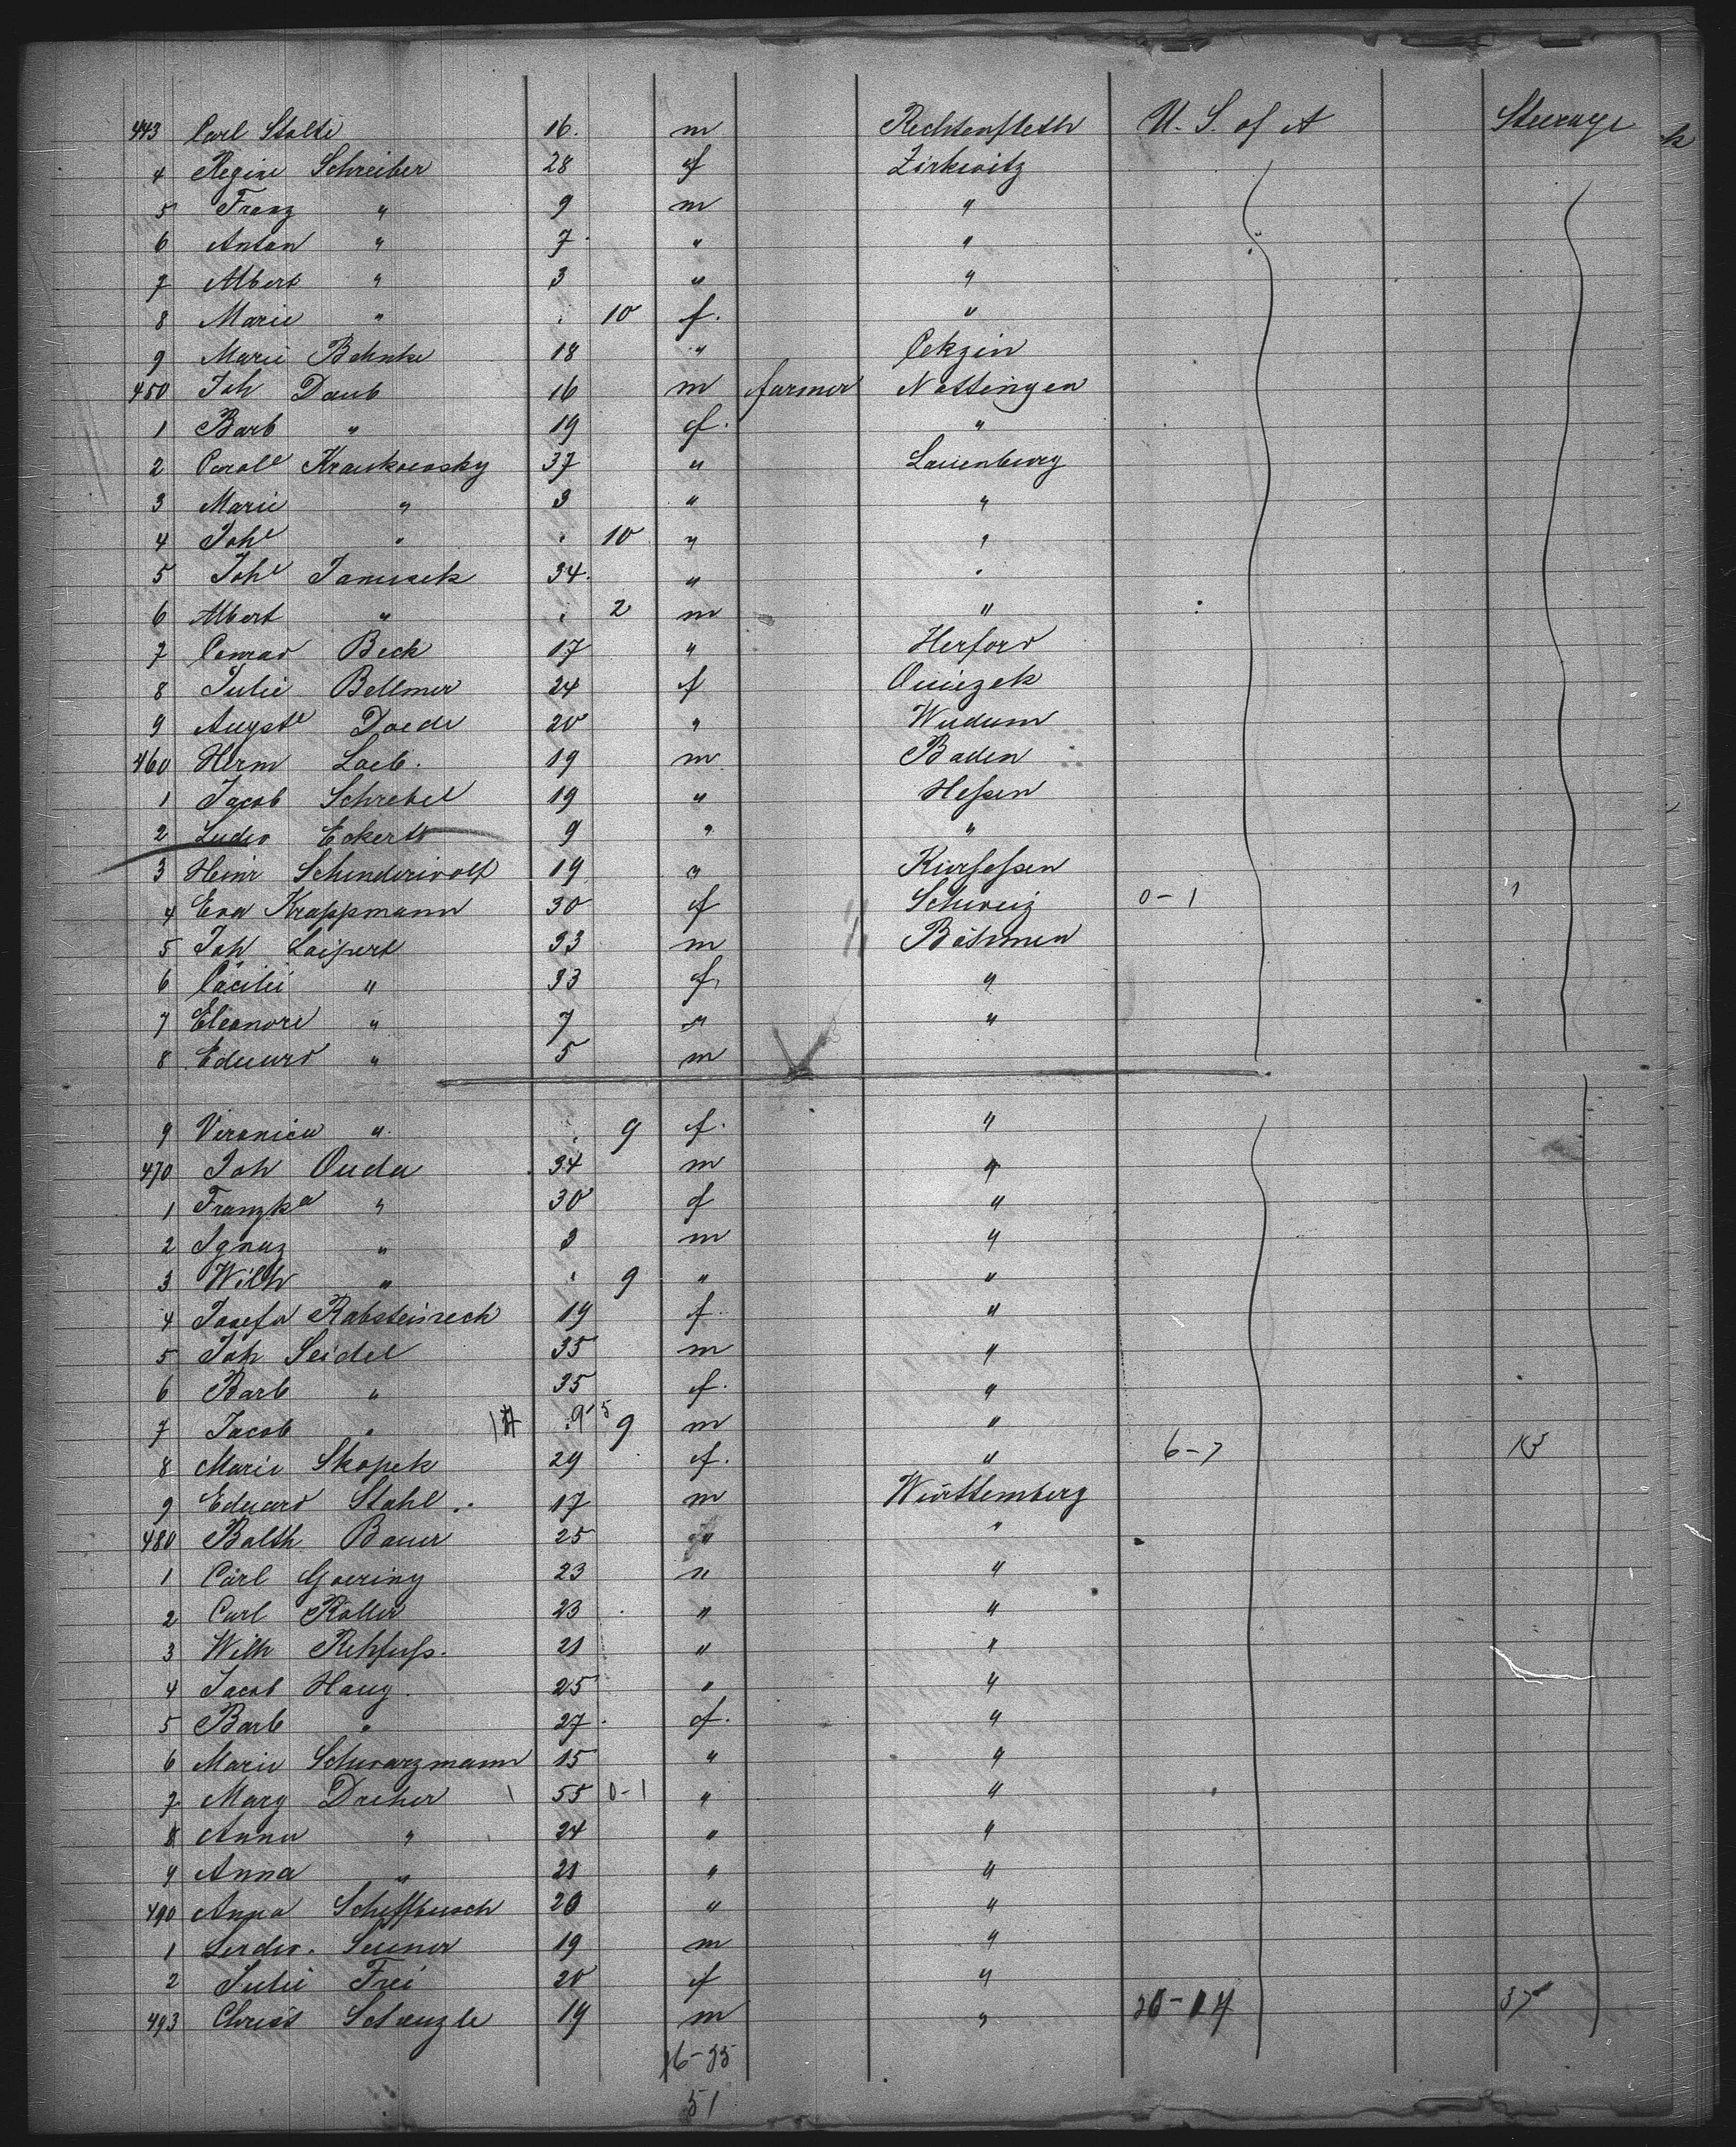 443 Carl Stolte 16. m Rechtenfleth U. S. of A Steerage
4 Regine Schreiber 28 f Zirkwitz
5 Franz " 9 m "
6 Anton " 7 " "
7 Albert " 3 " "
8 Marie " 10 f. "
9 Marie Behnke 18 " Cekzin
450 Joh Daub 16 m farmer Nöttingen
1 Barb " 19 f. "
2 Carole Kraukowsky 37 " Lauenburg
3 Marie " 3 " "
4 Johe " 10 " "
5 Johe Janussek 34. " "
6 Albert " 2 m "
7 Conrad Beck 17 " Herford
8 Julie Bellmer 24 f
9 Auguste Doede 20 " Wudum
460 Herm Loeb. 19 m Baden
1 Jacob Schrebel 19 " Heßen
2 Ludw Eckert 9 " "
3 Heinr Schinderwolf 19 " Kurheßen
4 Eva Krappmann 30 f Schweiz 0-1 1
5 Joh Laipert 33 m Böhmen
6 Cäcilie " 33 f "
7 Eleonore " 7 " "
8 Eduard " 5 m
9 Veronica " 9 f. "
470 Joh Ouda 34 m "
1 Franzka " 30 f "
2 Ignaz " 3 m "
3 Wilh " 9 " "
4 Josefa Rabsteinech 19 f. "
5 Joh Seidel 35 m "
6 Barb " 35 f. "
7 Jacob " 9 m "
8 Marie Skopek 29 f. " 6-7 13
9 Eduard Stahl 17 m Württemberg
480 Balth Bauer 25 " "
1 Carl Goering 23 " "
2 Carl Roller 23 " "
3 Wilh Rehfuß. 21 " "
4 Jacob Haug. 25 " "
5 Barb " 27. f. "
6 Marie Schwarzmann 15 " "
7 Marg Dreher 1 55 0-1 " "
8 Anna " 24 " "
9 Anna " 21 " "
490 Anna Schiffbusch 20 " "
1 Ludw. Seuner 19 m "
2 Julie Frei 20 f "
493 Christ Schenzle 19 m " 20-17 37
16-35
51